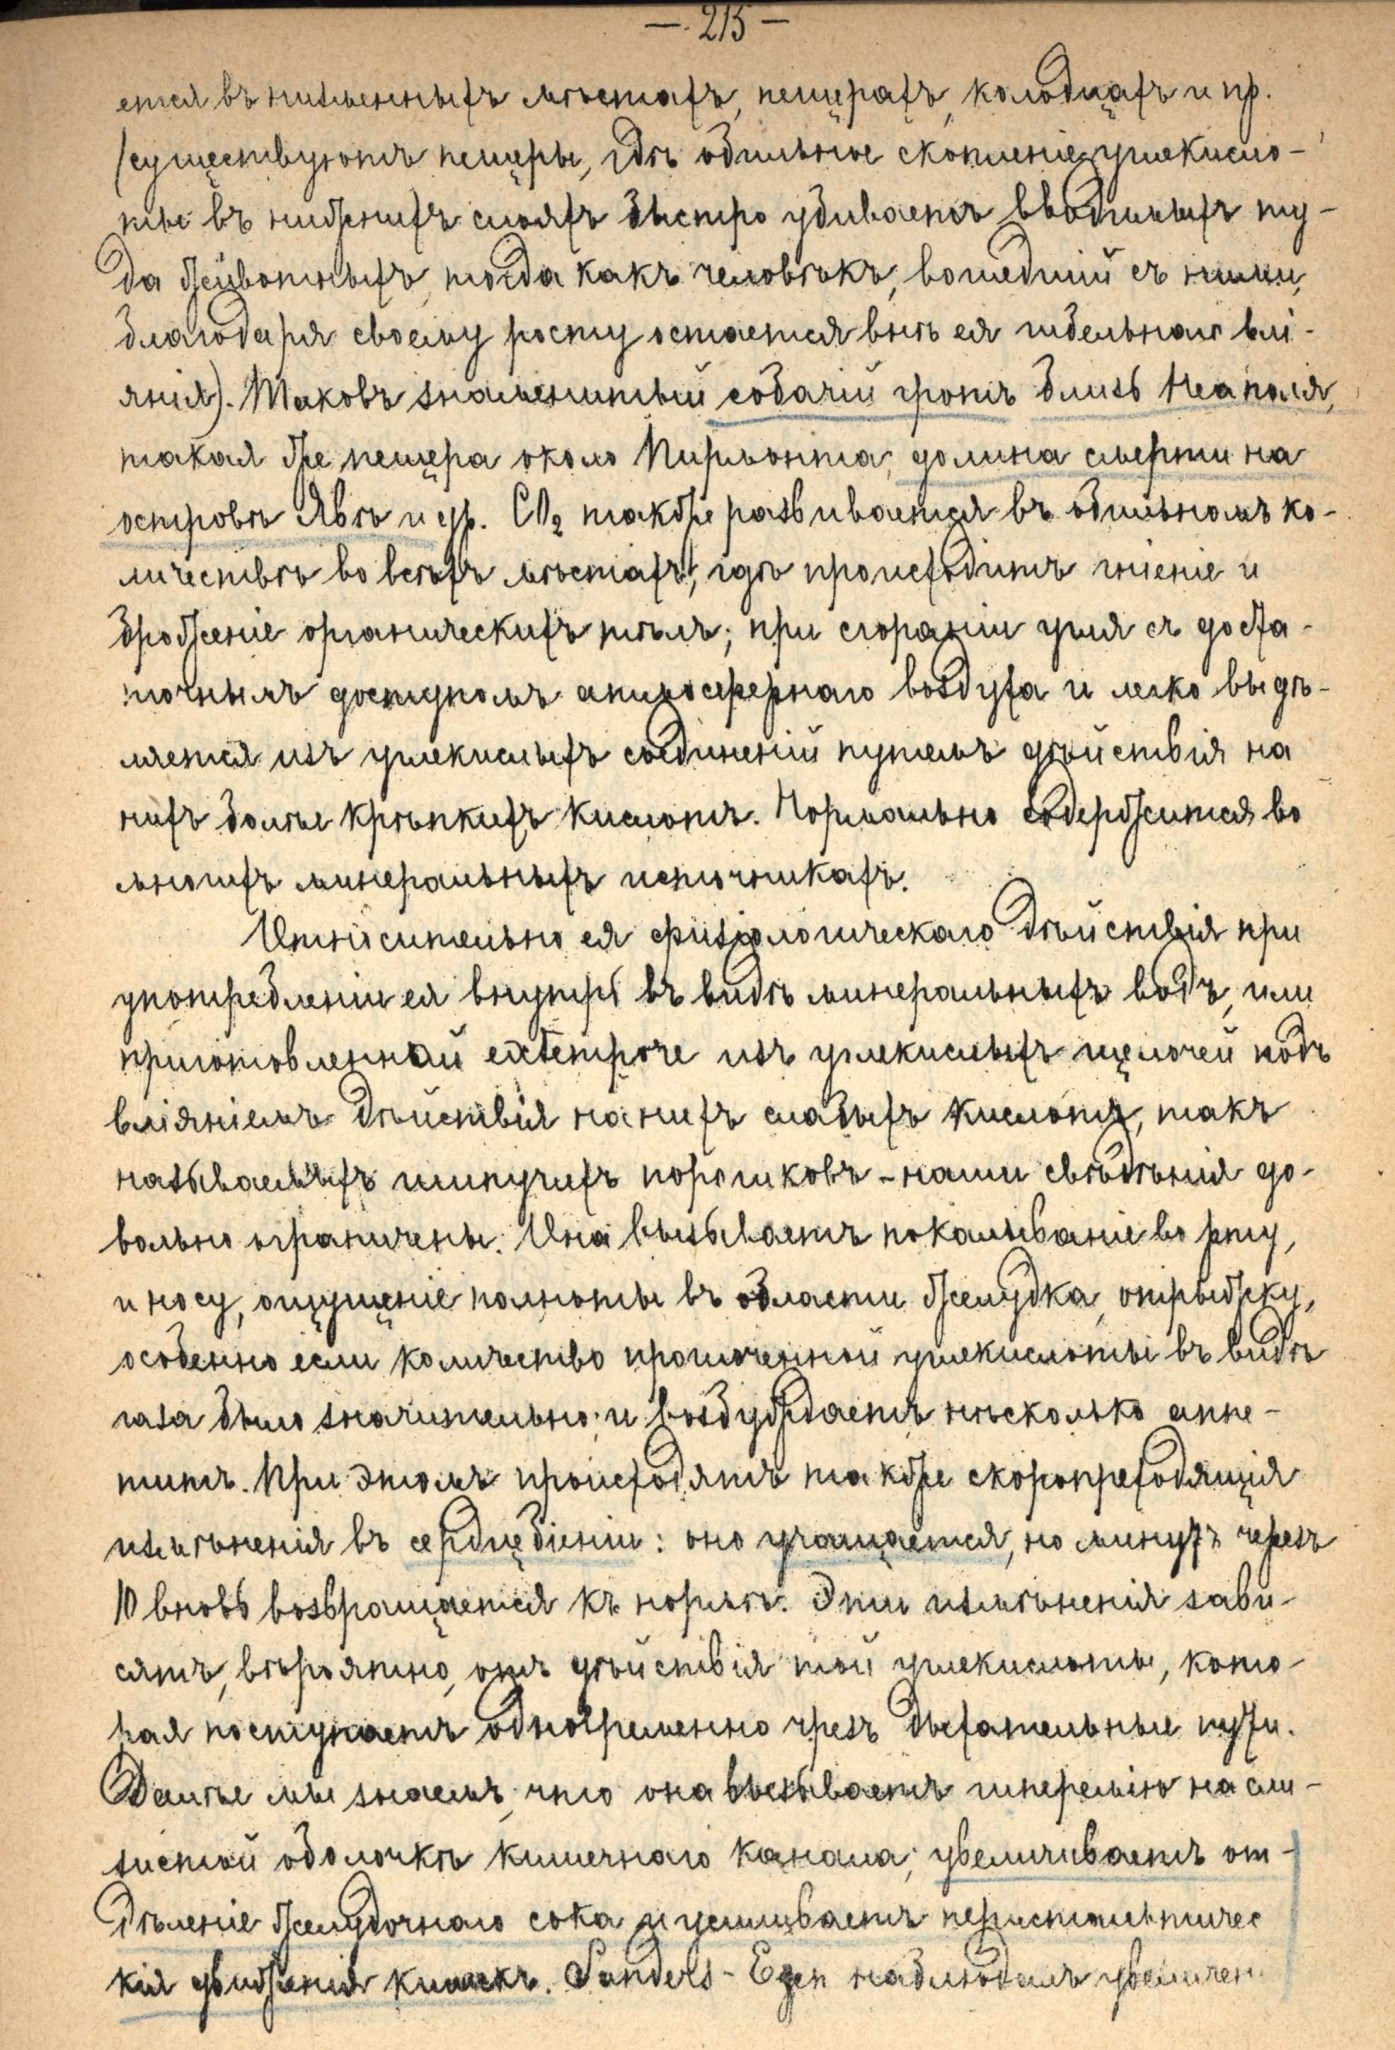 — 215 —
ется въ низменныхъ мѣстахъ, пещерахъ, колодцахъ и пр.
(существуютъ пещеры, гдѣ обильное скопленіе углекисло-
ты въ нижнихъ слояхъ быстро убиваетъ вводимыхъ ту-
да животныхъ, тогда какъ человѣкъ, вошедшій съ ними,
благодаря своему росту остается внѣ ея гибельнаго влі-
янія). Таковъ знаменитый собачій гротъ близь Неаполя,
такая же пещера около Пирмонта, долина смерти на
островѣ Явѣ и др. CO₂ также развивается въ обильномъ ко-
личествѣ во всѣхъ мѣстахъ, гдѣ происходитъ гніеніе и
броженіе органическихъ тѣлъ; при сгораніи угля съ доста-
точнымъ доступомъ атмосфернаго воздуха и легко выдѣ-
ляется изъ углекислыхъ соединеній путемъ дѣйствія на
нихъ болѣе крѣпкихъ кислотъ. Нормально содержится во
многихъ минеральныхъ источникахъ.
Относительно ея физіологическаго дѣйствія при
употребленіи ея внутрь въ видѣ минеральныхъ водъ, или
приготовленной extempore изъ углекислыхъ щелочей подъ
вліяніемъ дѣйствія на нихъ слабыхъ кислотъ, такъ
называемыхъ шипучихъ порошковъ - наши свѣдѣнія до-
вольно ограничены. Она вызываетъ покалываніе во рту,
и носу, ощущеніе полноты въ области желудка, отрыжку,
особенно если количество проглоченной углекислоты въ видѣ
газа было значительно; и возбуждаетъ нѣсколько аппе-
титъ. При этомъ происходятъ также скоропреходящія
измѣненія въ сердцебіеніи: оно учащается, но минутъ черезъ
10 вновь возвращается къ нормѣ. Эти измѣненія зави-
сятъ, вѣроятно, отъ дѣйствія той углекислоты, кото-
рая поступаетъ одновременно чрезъ дыхательные пути.
Далѣе мы знаемъ, что она вызываетъ гиперемію на сли-
зистой оболочкѣ кишечнаго канала; увеличиваетъ от-
дѣленіе желудочнаго сока и усиливаетъ перистальтичес
кія движенія кишекъ. Sanders - Ezn наблюдалъ увеличен